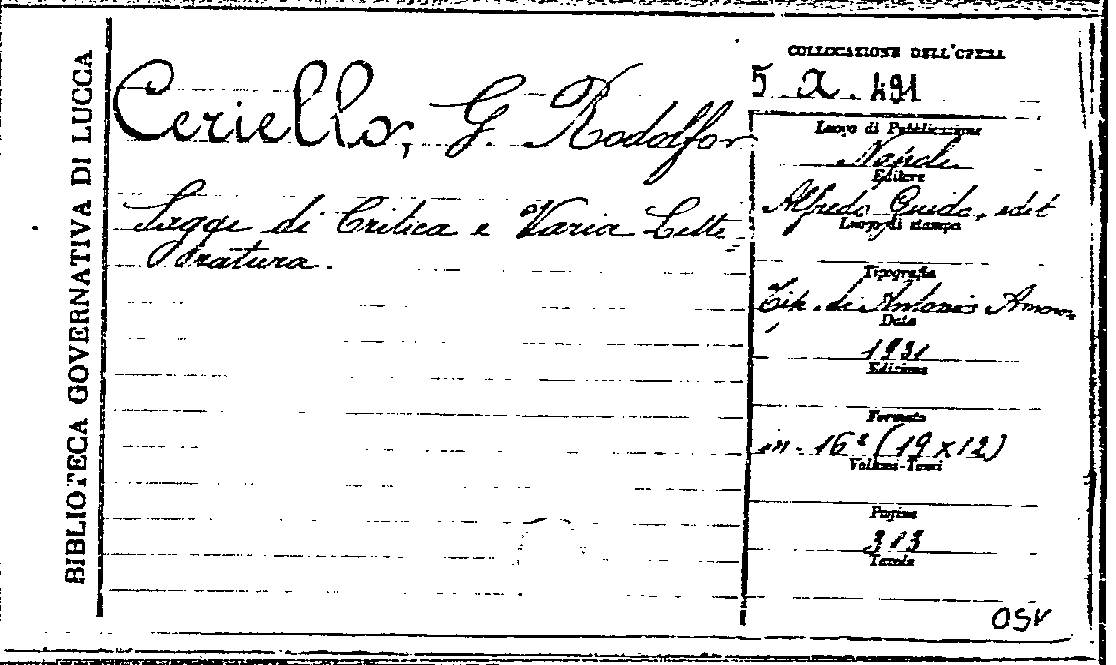 BIBLIOTECA GOVERNATIVA DI LUCCA
Ceriello, G. Rodolfo
Saggi di Critica e Varia Lette=
ratura.
COLLOCAZIONE DELL'OPERA
5. X. 491
Luogo di Pubblicazione
Napoli
Editore
Alfredo Guida, edit
Luogo di stampa
Tipografia
Tip. di Antonio
Data
1931
Edizione
Formato
in-16º (19x12)
Volumi-Tomi
Pagine
313
Tavole
OSV